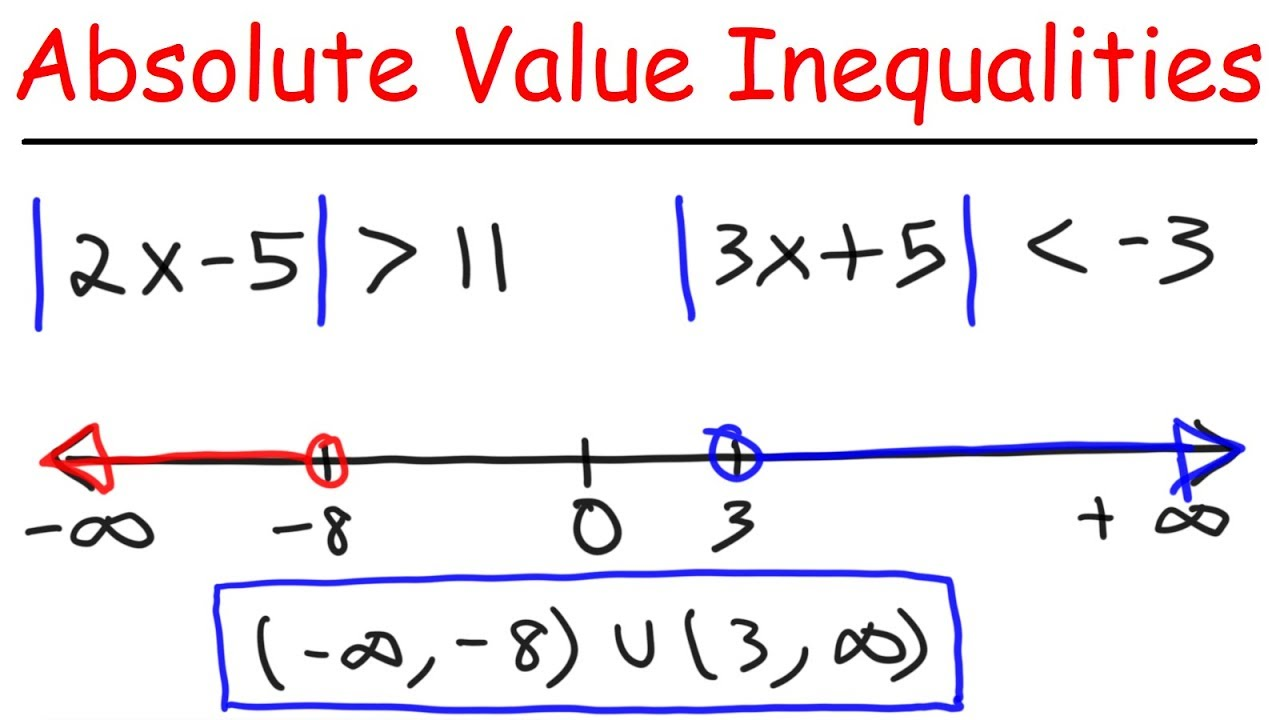 Absolute Value Inequalities
|2x-5| > 11 |3x+5| < -3
-∞ -8 0 3 + ∞
(-∞, -8) ∪ (3, ∞)